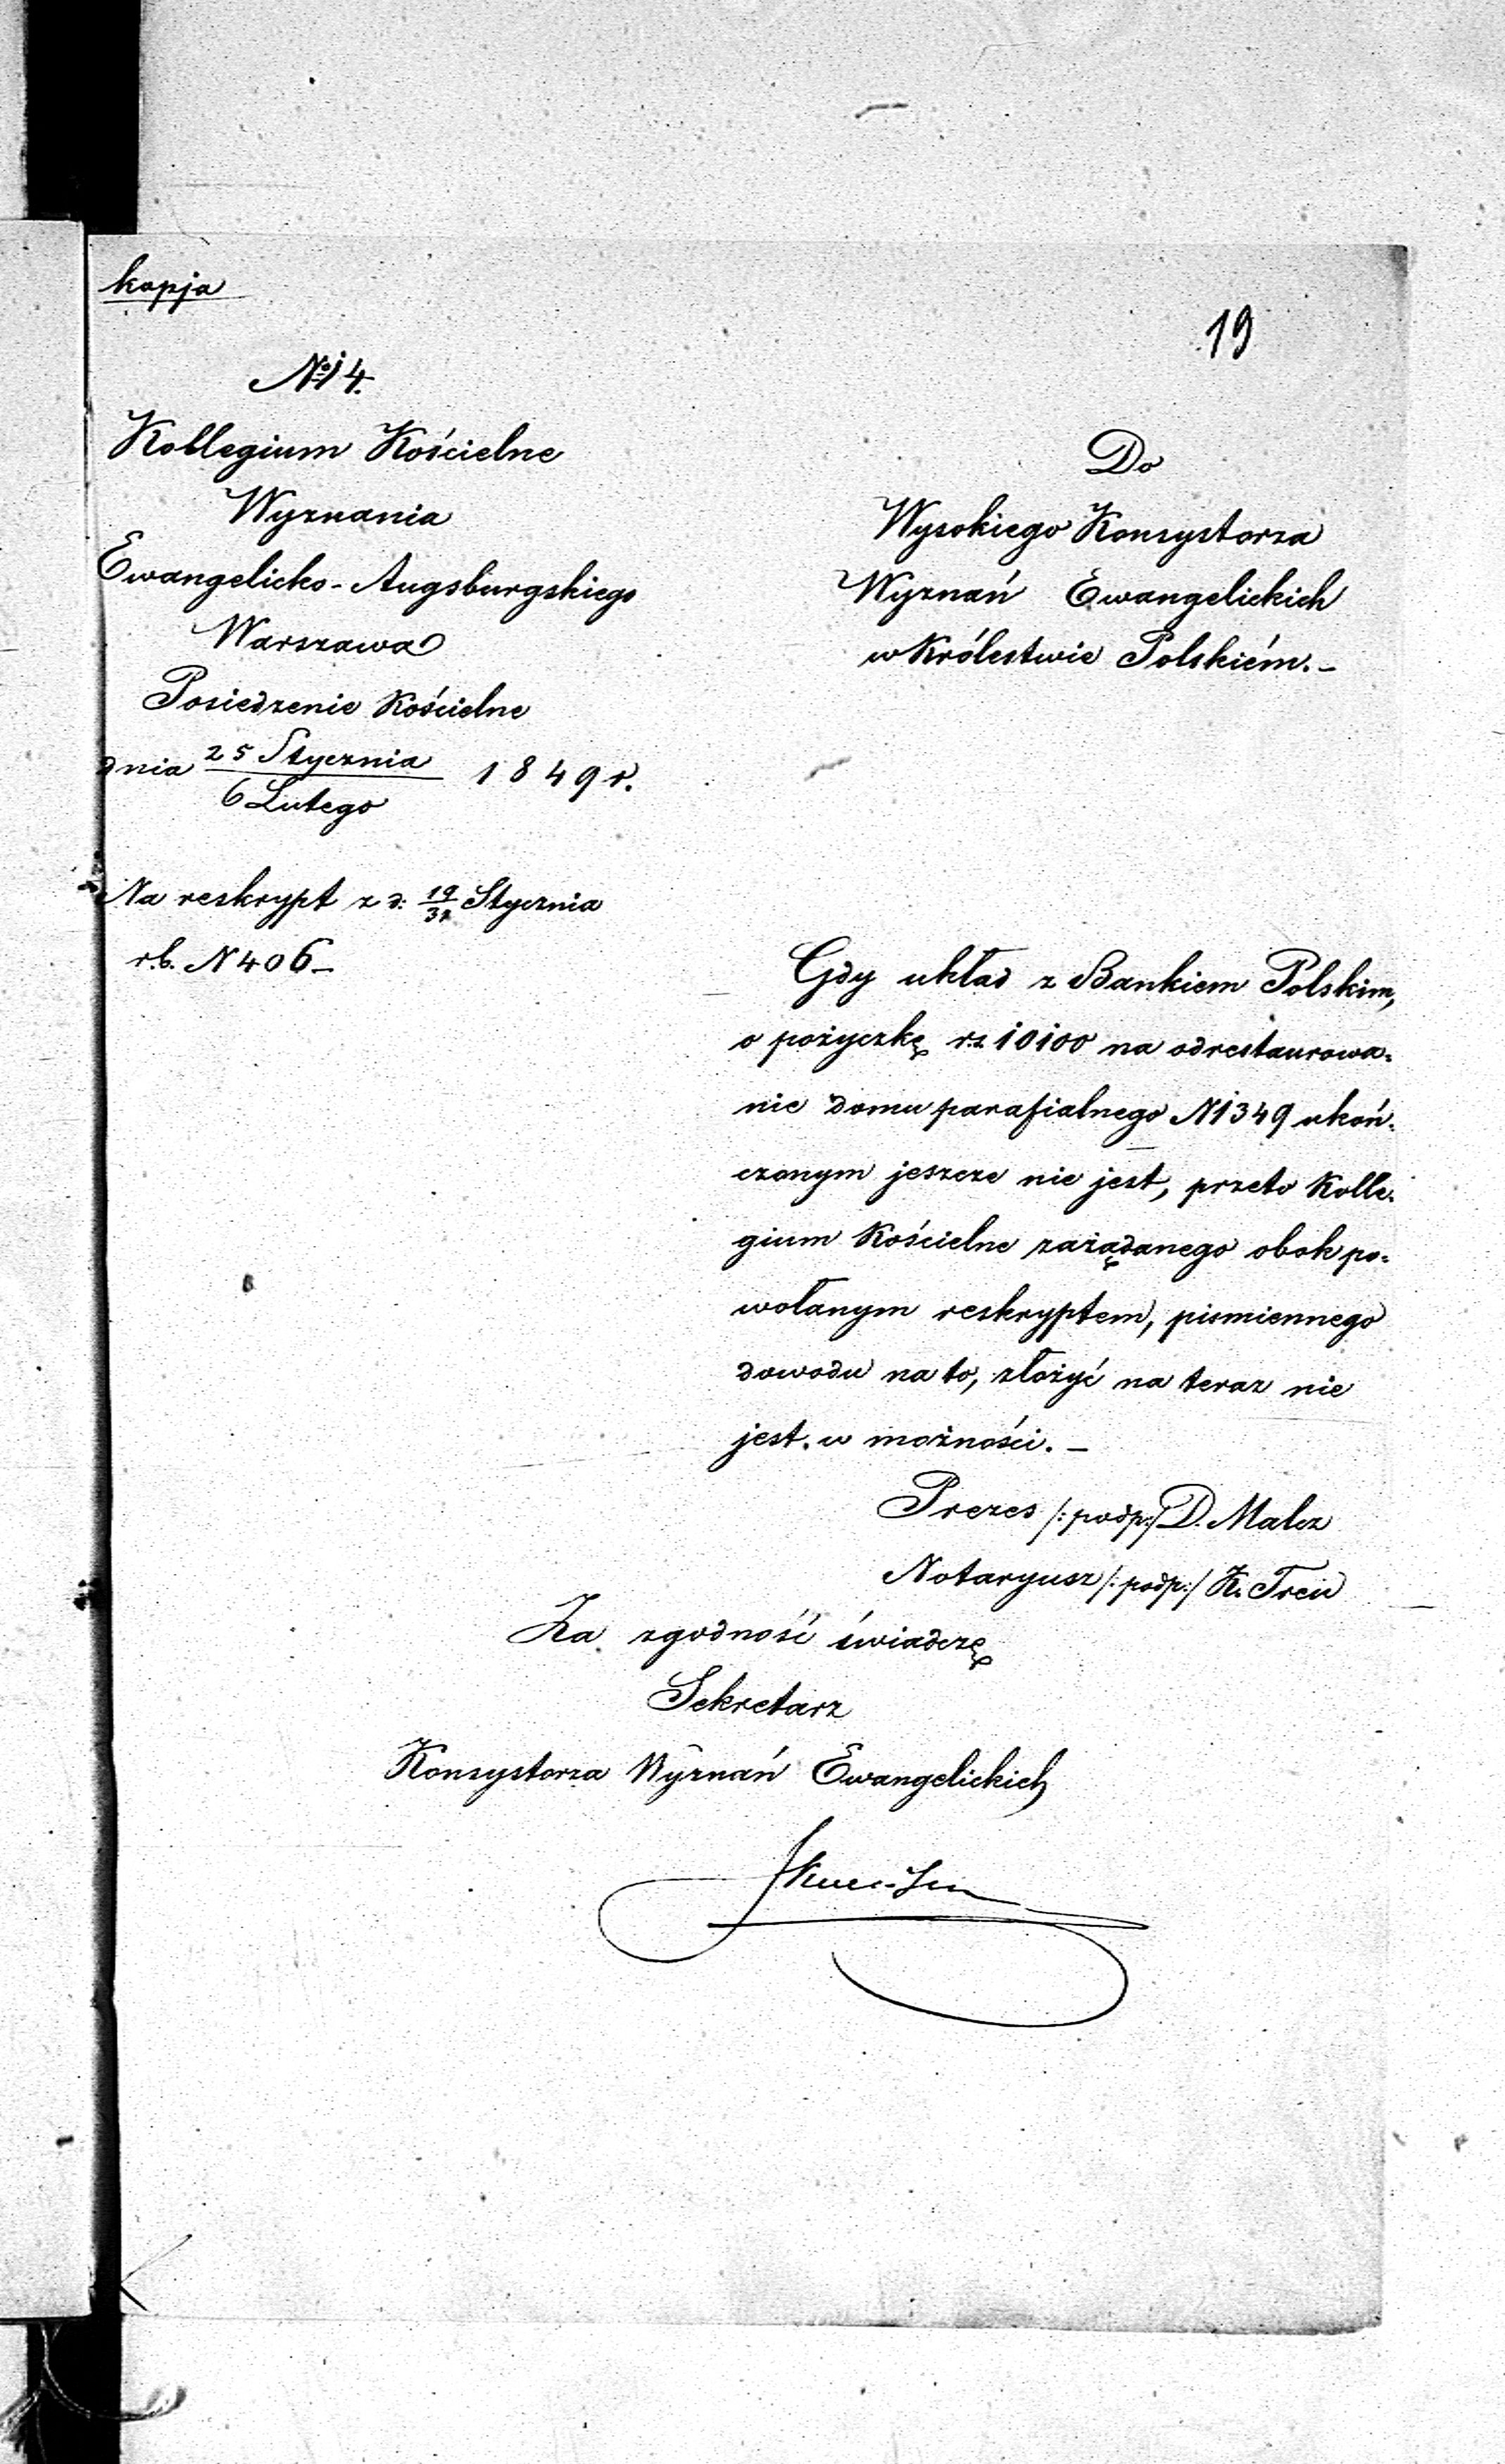 kopja
19
№ 14.
Kollegium Kościelne
Wyznania
Ewangelicko-Augsburgskiego
Warszawa
Posiedzenie Kościelne
dnia 25 Stycznia / 6 Lutego 1849 r.
Na reskrypt z d: 19/31 Stycznia
r.b. N 406 –
Do
Wysokiego Konsystorza
Wyznań Ewangelickich
w Królestwie Polskiém. –
Gdy układ z Bankiem Polskim,
o pożyczkę rs 10100 na odrestaurowa-
nie domu parafialnego N 1349 ukoń-
czonym jeszcze nie jest, przeto Kolle-
gium Kościelne zażądanego obok po-
wołanym reskryptem, pismiennego
dowodu na to, złożyć na teraz nie
jest w możności. –
Prezes /: podp:/ D. Malcz
Notaryusz /: podp:/ K. Treu
Za zgodność świadczę
Sekretarz
Konsystorza Wyznań Ewangelickich